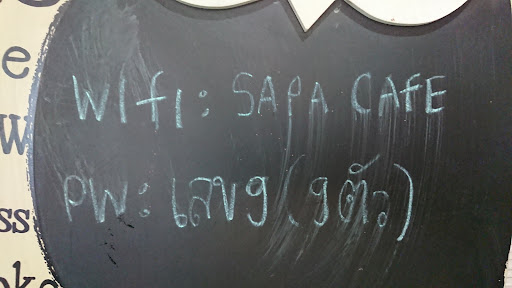 Wifi: SAPA CAFE
PW: เลข9(9ตัว)